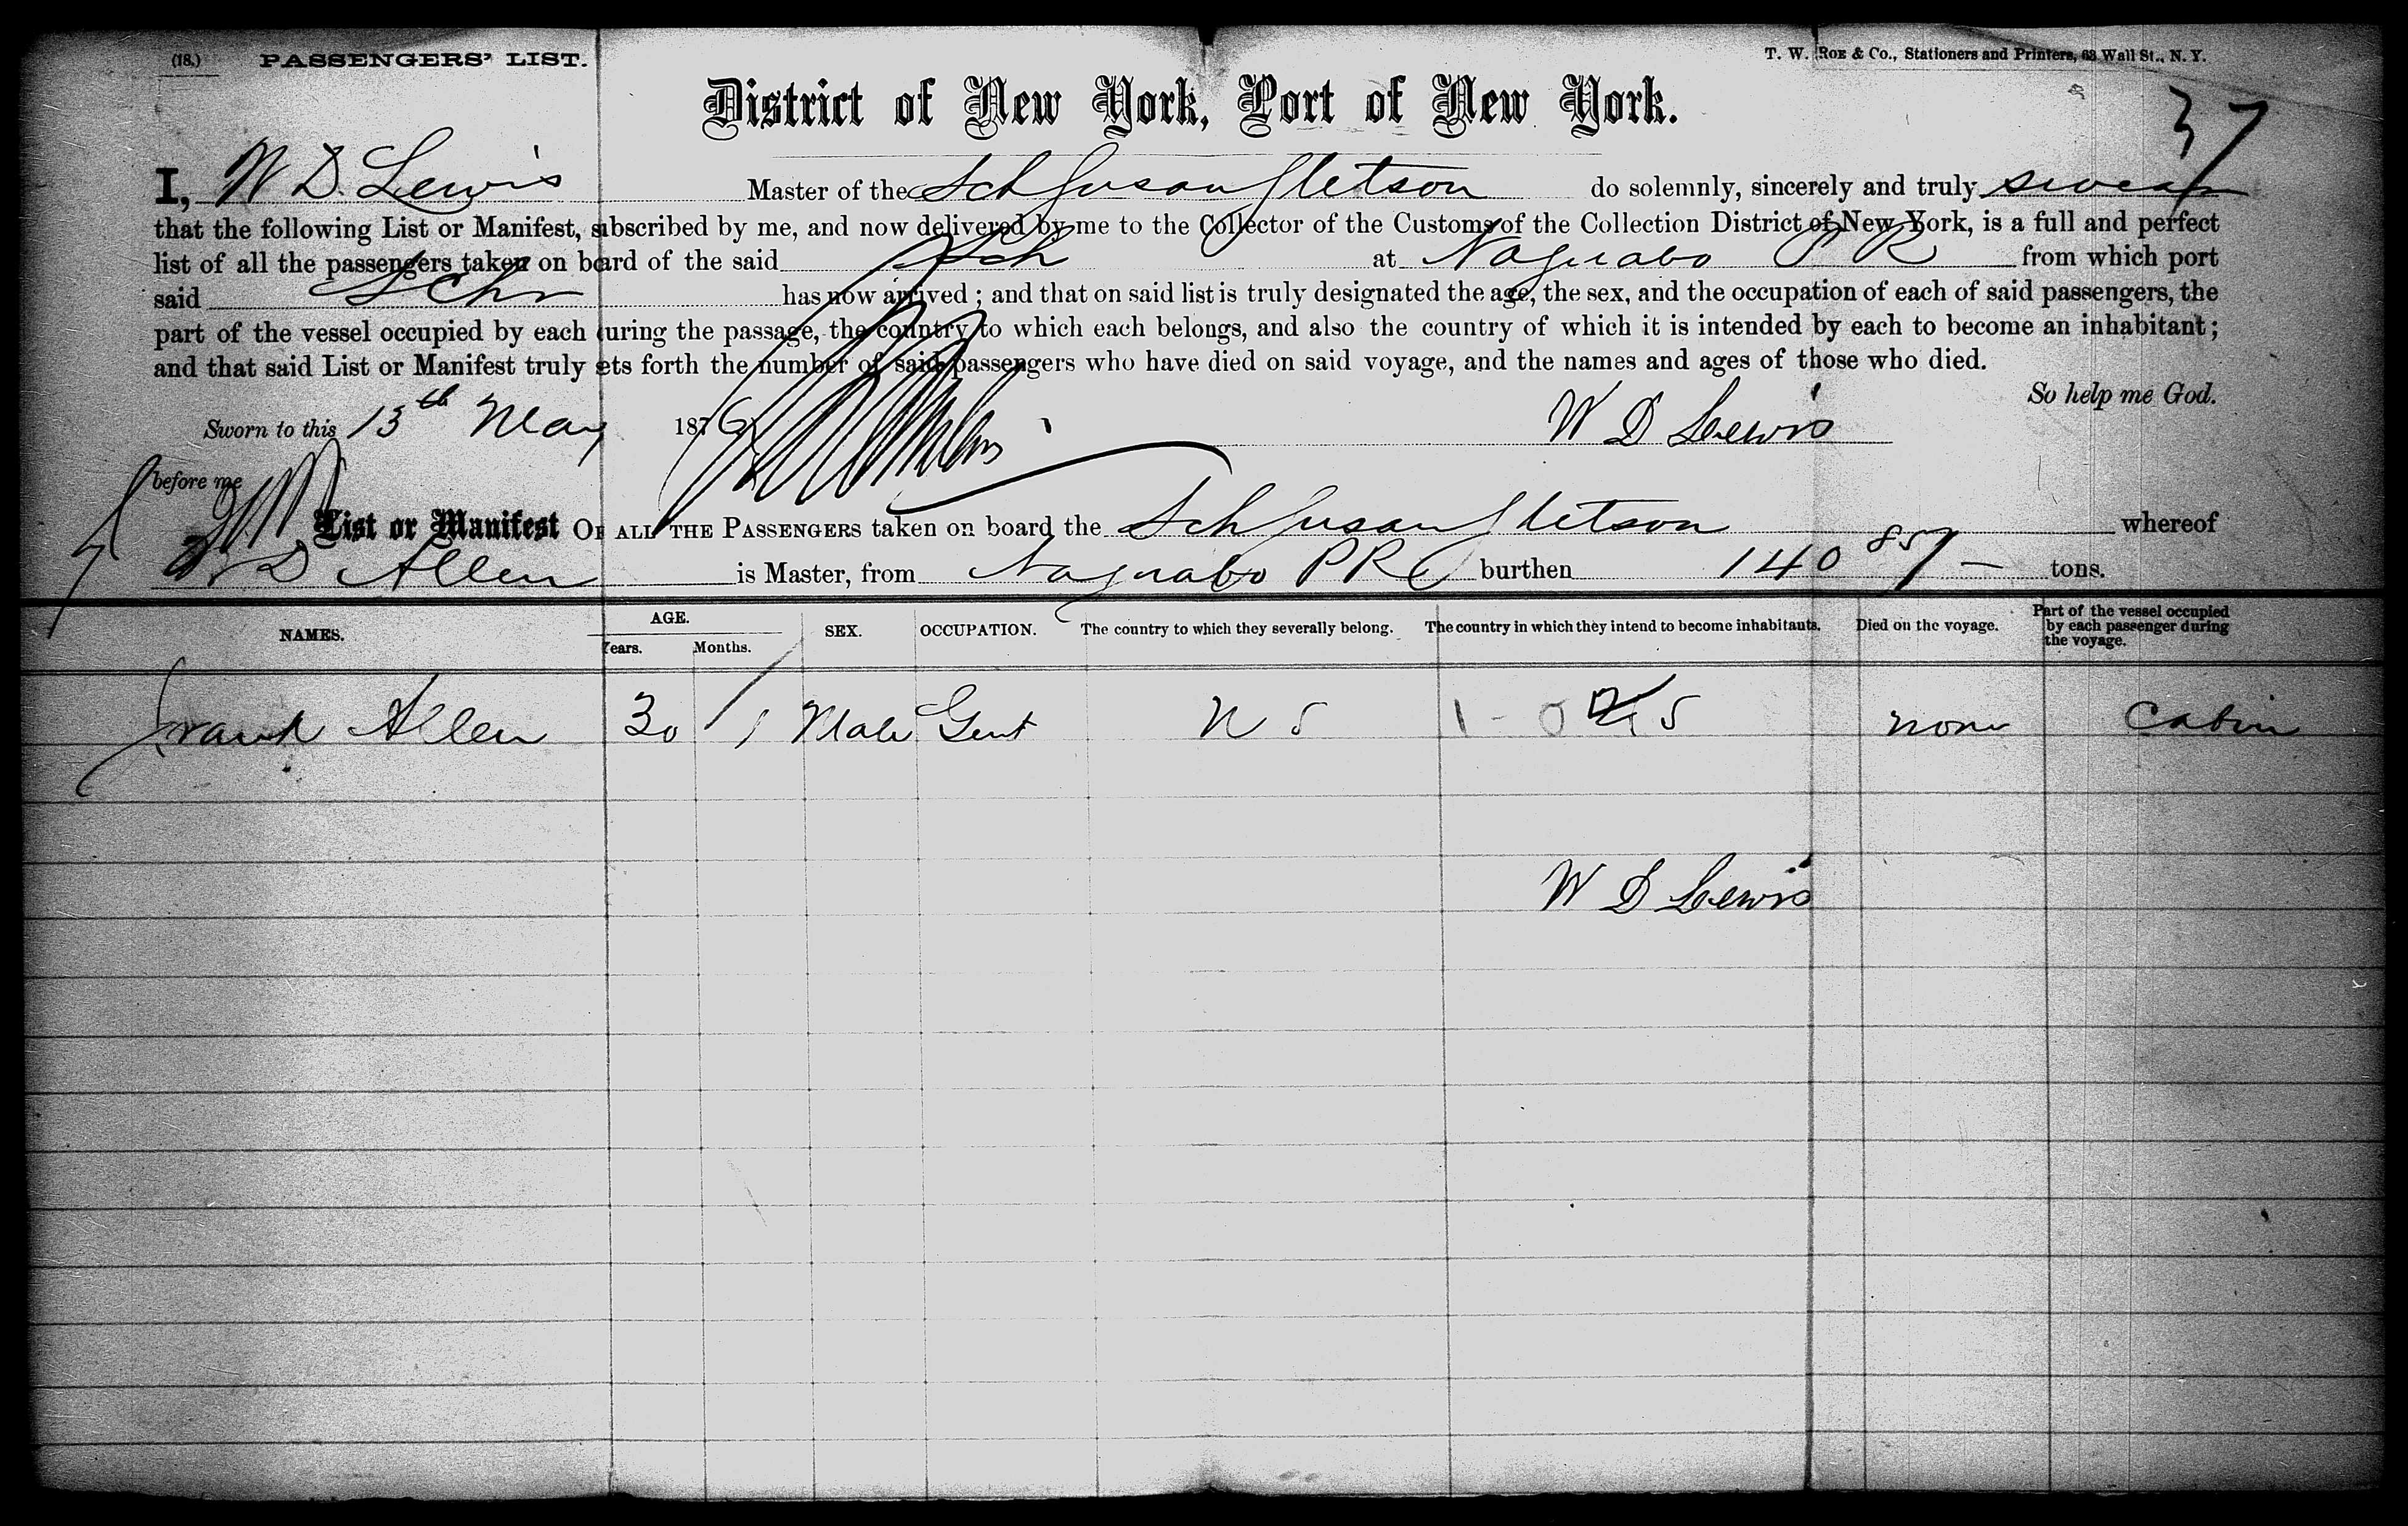 (18.) PASSENGERS' LIST.
T. W. Roe & Co., Stationers and Printers, 63 Wall St., N. Y.
District of New York, Port of New York.
37
I, W D. Lewis Master of the Sch Susan Stetson do solemnly, sincerely and truly swear
that the following List or Manifest, subscribed by me, and now delivered by me to the Collector of the Customs of the Collection District of New York, is a full and perfect
list of all the passengers taken on board of the said Sch at Naguabo P R from which port
said Schr has now arrived; and that on said list is truly designated the age, the sex, and the occupation of each of said passengers, the
part of the vessel occupied by each during the passage, the country to which each belongs, and also the country of which it is intended by each to become an inhabitant;
and that said List or Manifest truly sets forth the number of said passengers who have died on said voyage, and the names and ages of those who died.
So help me God.
Sworn to this 13th May 1876 W D Lewis
before me
List or Manifest OF ALL THE PASSENGERS taken on board the Sch Susan Stetson whereof
D Allen is Master, from Naguabo PR burthen 140 tons.
NAMES. AGE. Years. Months. SEX. OCCUPATION. The country to which they severally belong. The country in which they intend to become inhabitants. Died on the voyage. Part of the vessel occupied by each passenger during the voyage.
Frank Allen 30 Male Gent none Cabin
W D Lewis